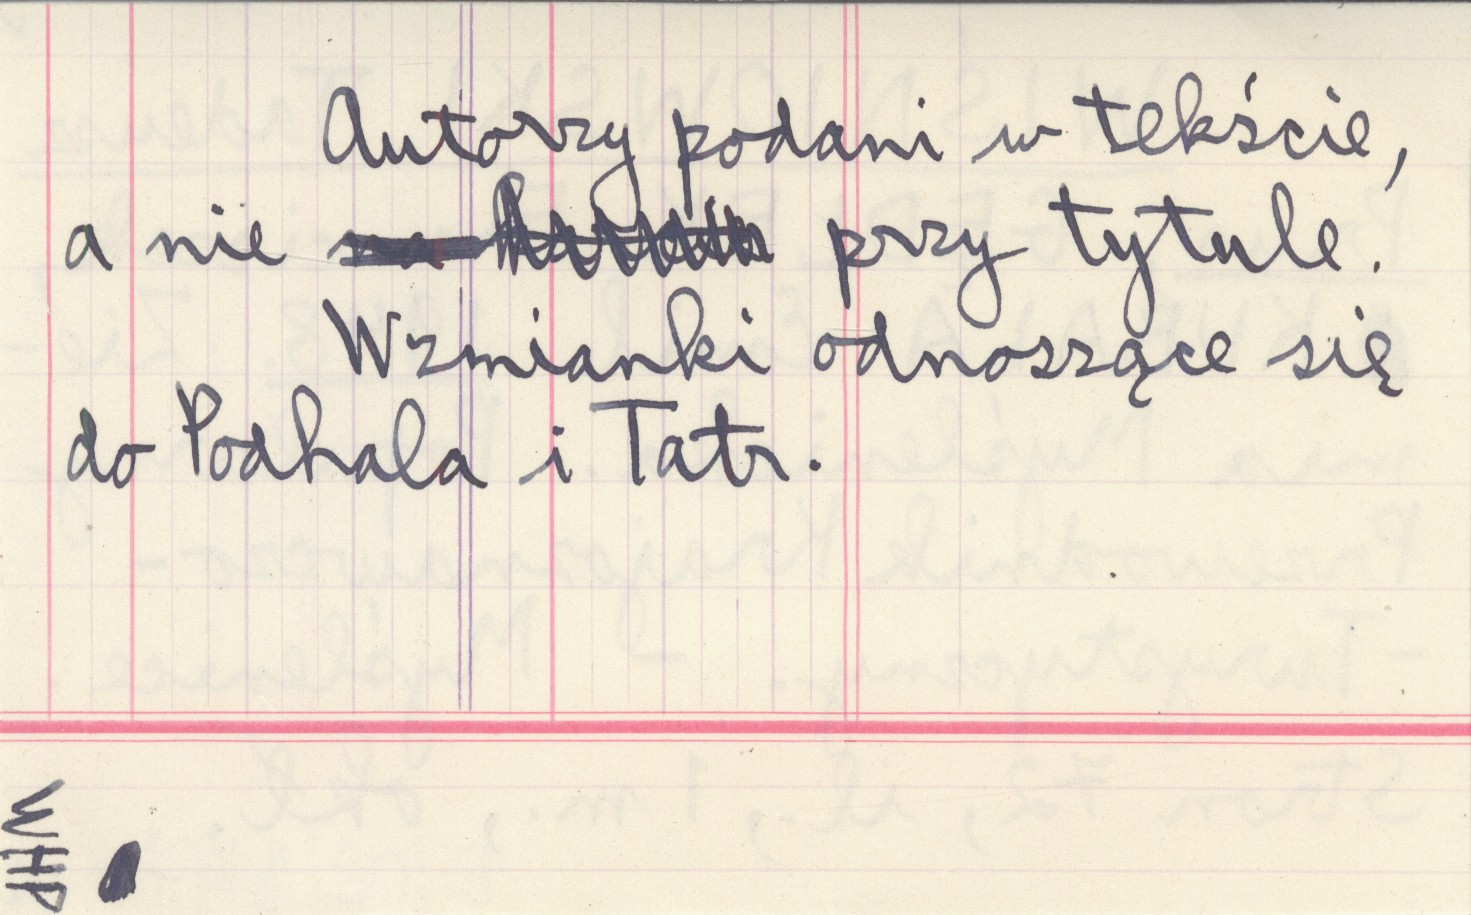 Autorzy podani w tekście,
a nie przy tytule.
Wzmianki odnoszące się
do Podhala i Tatr.
WHP